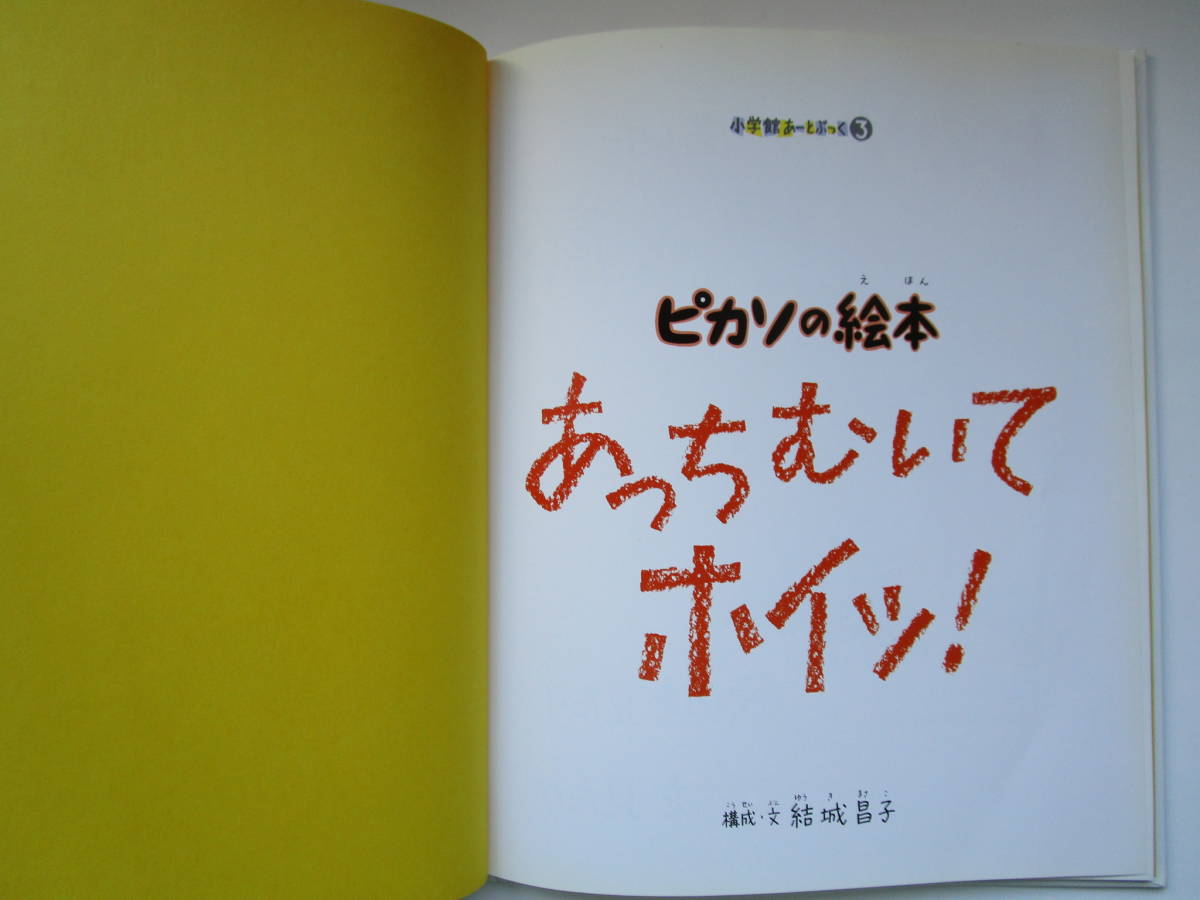 小学館あーとぶっく3
え ほん
ピカソの絵本
あっちむいて
ホイッ!
こうせい ぶん ゆう き まさ こ
構成・文 結城昌子